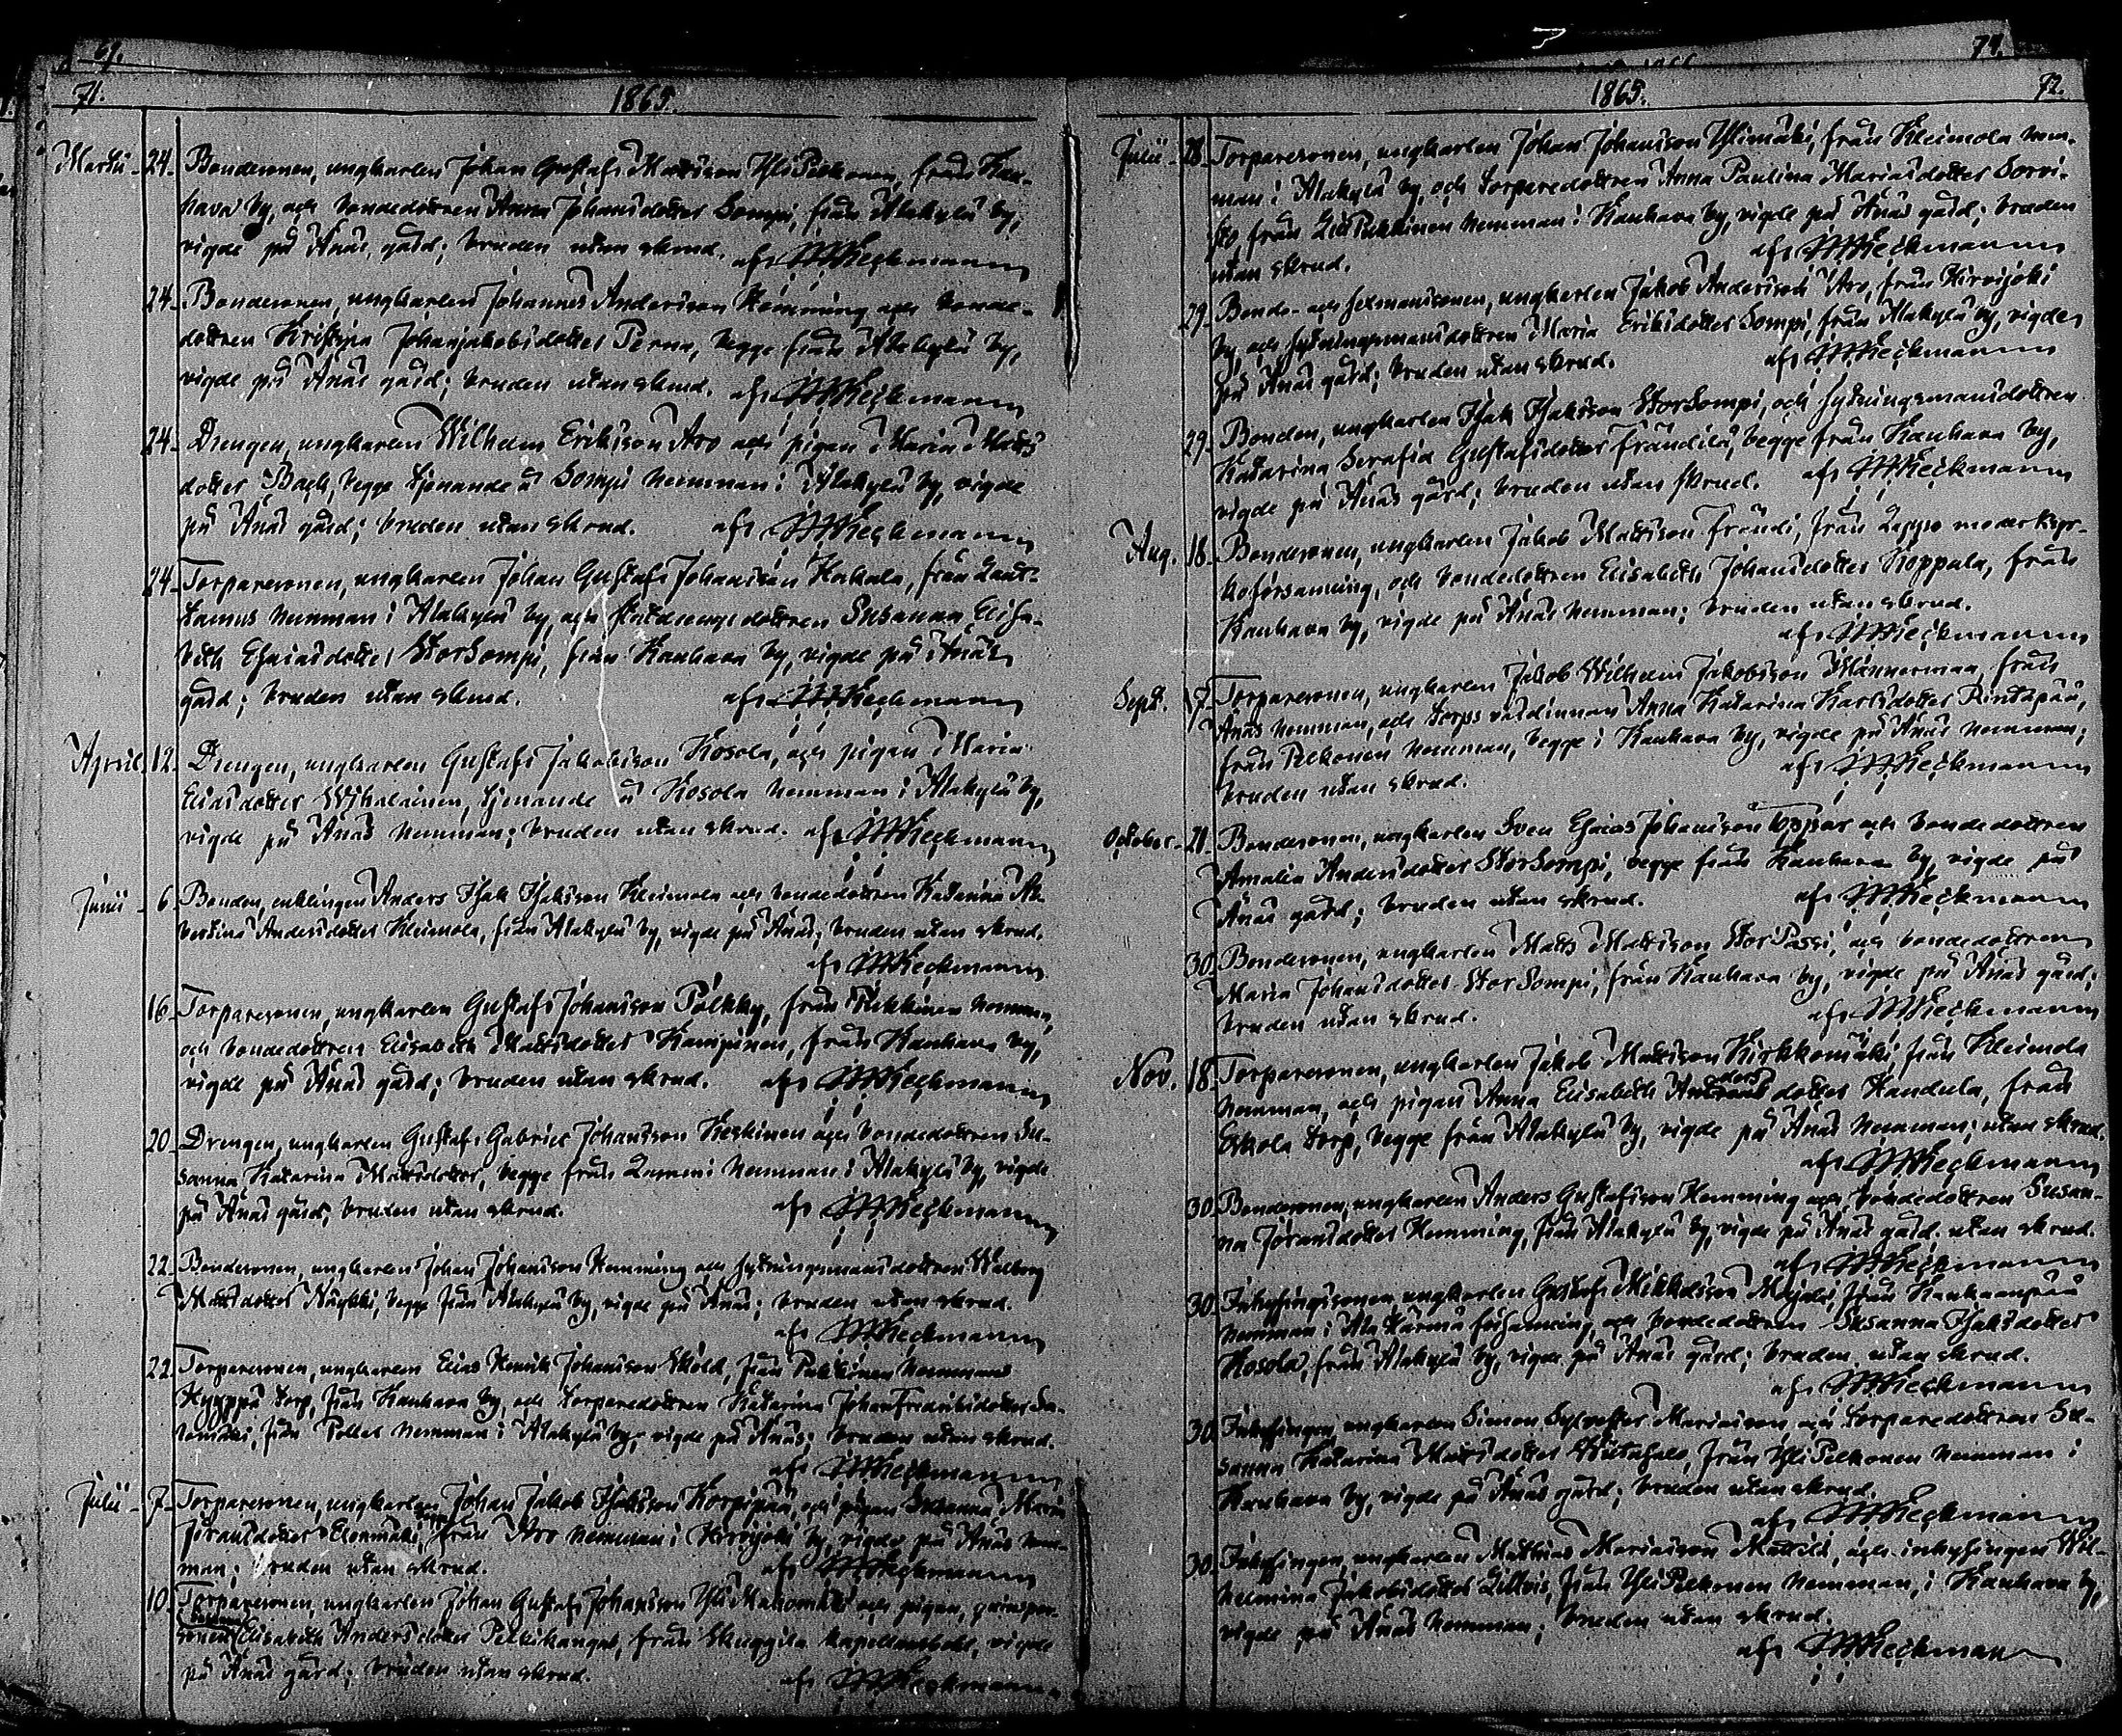 69.
74.
71.
1865.
Martii 24. Bondesonen, ungkarlen Johan Gustaf Mattsson YliPelkonen, från Kau-
hava by, och bondedottren Anna Johansdotter Sompi, från Alakylä by,
vigde på Ånäs gård; bruden utan skrud. af
24. Bondesonen, ungkarlen Johannes Andersson Hemming och bonde-
dottren Kristina Johanjakobsdotter Perna, begge från Alakylä by,
vigde på Ånäs gård; bruden utan skrud. af
24. Drengen, ungkarlen Wilhelm Eriksson Aro och pigan Maria Matts
dotter Back, begge tjenande å Sompi hemman i Alakylä by, vigde
på Ånäs gård; bruden utan skrud. af
24. Torparesonen, ungkarlen Johan Gustaf Johansson från
hemman i Alakylä by, och statdrengsdottren Susanna Elisa-
beth Esaiasdotter StorSompi, från Kauhava by, vigde på Ånäs
gård; bruden utan skrud. af
April. 12. Drengen, ungkarlen Gustaf Jakobsson Kosola, och pigan Maria
Eliasdotter tjenande å Kosola hemman i Alakylä by,
vigde på Ånäs hemman; bruden utan skrud. af
Junii 6. Bonden, enklingen Anders Isak Isaksson Kleimola och bondedottren Katarina Al-
bertina Andersdotter Kleimola, från Alakylä by, vigde på Ånäs; bruden utan skrud.
af
16. Torparesonen, ungkarlen Gustaf Johansson Pölkky, från Pukkinen hemman,
och bondedottren Elisabeth Mattsdotter Kamppinen, från Kauhava by,
vigde på Ånäs gård; bruden utan skrud. af
20. Drengen, ungkarlen Gustaf Gabriel Johansson Keskinen och bondedottren Su-
sanna Katarina Mattsdotter, begge från hemman i Alakylä by, vigde
på Ånäs gård; bruden utan skrud. af
22. Bondesonen, ungkarlen Johan Johansson Hemming och sytningsmansdottren Walborg
Mattsdotter begge från Alakylä by, vigde på Ånäs; bruden utan skrud.
af
22. Torparesonen, ungkarlen Elias Henrik Johansson Sköld, från Pukkinen hemmans
torp, från Kauhava by, och torparedottren Katarina JohanFredriksdotter Sa-
lomäki, från hemman i Alakylä by, vigde på Ånäs; bruden utan skrud.
af
Julii 7. Torparesonen, ungkarlen Johan Jakob Isaksson Korpipää, och pigan Susanna Maria
Jöransdotter Elonmäki, från Aro hemman i Hirvijoki by, vigde på Ånäs hem-
man; bruden utan skrud. af
10. Torparesonen, ungkarlen Johan Gustaf Johansson YliMakomäki och pigan, qvinsper-
sonen Elisabeth Andersdotter Pelkikangas, från kapellansbohl, vigde
på Ånäs gård; bruden utan skrud. af
1865.
72.
Julii 28. Torparesonen, ungkarlen Johan Johansson Ylimäki, från Kleimola hem-
man i Alakylä by, och torparedottren Anna Paulina Mariasdotter Sorvi-
sto, från Pukkinen hemman i Kauhava by, vigde på Ånäs gård; bruden
utan skrud. af
29. Bonde- och sexmansonen, ungkarlen Jakob Andersson Aro, från Hirvijoki
by, och sytningsmansdottren Maria Eriksdotter Sompi, från Alakylä by, vigde
på Ånäs gård; bruden utan skrud. af
29. Bonden, ungkarlen Isak Isaksson StorSompi, och sytningsmansdottren
Katarina Serafia Gustafsdotter Frändilä, begge från Kauhava by,
vigde på Ånäs gård; bruden utan skrud. af
Aug. 18. Bondesonen, ungkarlen Jakob Mattsson Frändi, från Lappo moderkyr-
koförsamling, och bondedottren Elisabeth Johansdotter Koppala, från
Kauhava by, vigde på Ånäs hemman; bruden utan skrud.
af
Sept. 7. Torparesonen, ungkarlen Jakob Wilhelm Jakobsson Männermaa, från
Ånäs hemman, och torps värdinnan Anna Katarina Karlsdotter Rintapää,
från Pelkonen hemman, begge i Kauhava by, vigde på Ånäs hemman;
bruden utan skrud. af
October 21. Bondesonen, ungkarlen Sven Esaias Johansson Toppar och bondedottren
Amalia Andersdotter StorSompi, begge från Kauhava by, vigde på
Ånäs gård; bruden utan skrud. af
30. Bondesonen, ungkarlen Matts Mattsson StorPassi, och bondedottren
Maria Johansdotter StorSompi, från Kauhava by, vigde på Ånäs gård;
bruden utan skrud. af
Nov. 18. Torparesonen, ungkarlen Jakob Mattsson Kirkkomäki, från Kleimola
hemman, och pigan Anna Elisabeth Andersdotter Kandula, från
Eskola torp, begge från Alakylä by, vigde på Ånäs hemman; utan skrud.
af
30. Bondesonen, ungkarlen Anders Gustafsson Hemming och bondedottren Susan-
na Jöransdotter Hemming, från Alakylä by, vigde på Ånäs gård. utan skrud.
af
30. Inhysingssonen, ungkarlen Gustaf Mikkelsson från Kauhaanpää
hemman i Ala Härmä församling, och bondedottren Susanna Isaksdotter
Kosola, från Alakylä by, vigde på Ånäs gård; bruden utan skrud.
af
30. Inhysingen, ungkarlen Simon Sylvester Mariasson, och torparedottren Su-
sanna Katarina Mattsdotter Wiitasalo, från YliPelkonen hemman i
Kauhava by, vigde på Ånäs gård; bruden utan skrud.
af
30. Inhysingen, ungkarlen Matthias Mariasson Mattila, och inhysingen Wil-
helmina Jakobsdotter från YliPelkonen hemman, i Kauhava by,
vigde på Ånäs hemman; bruden utan skrud.
af